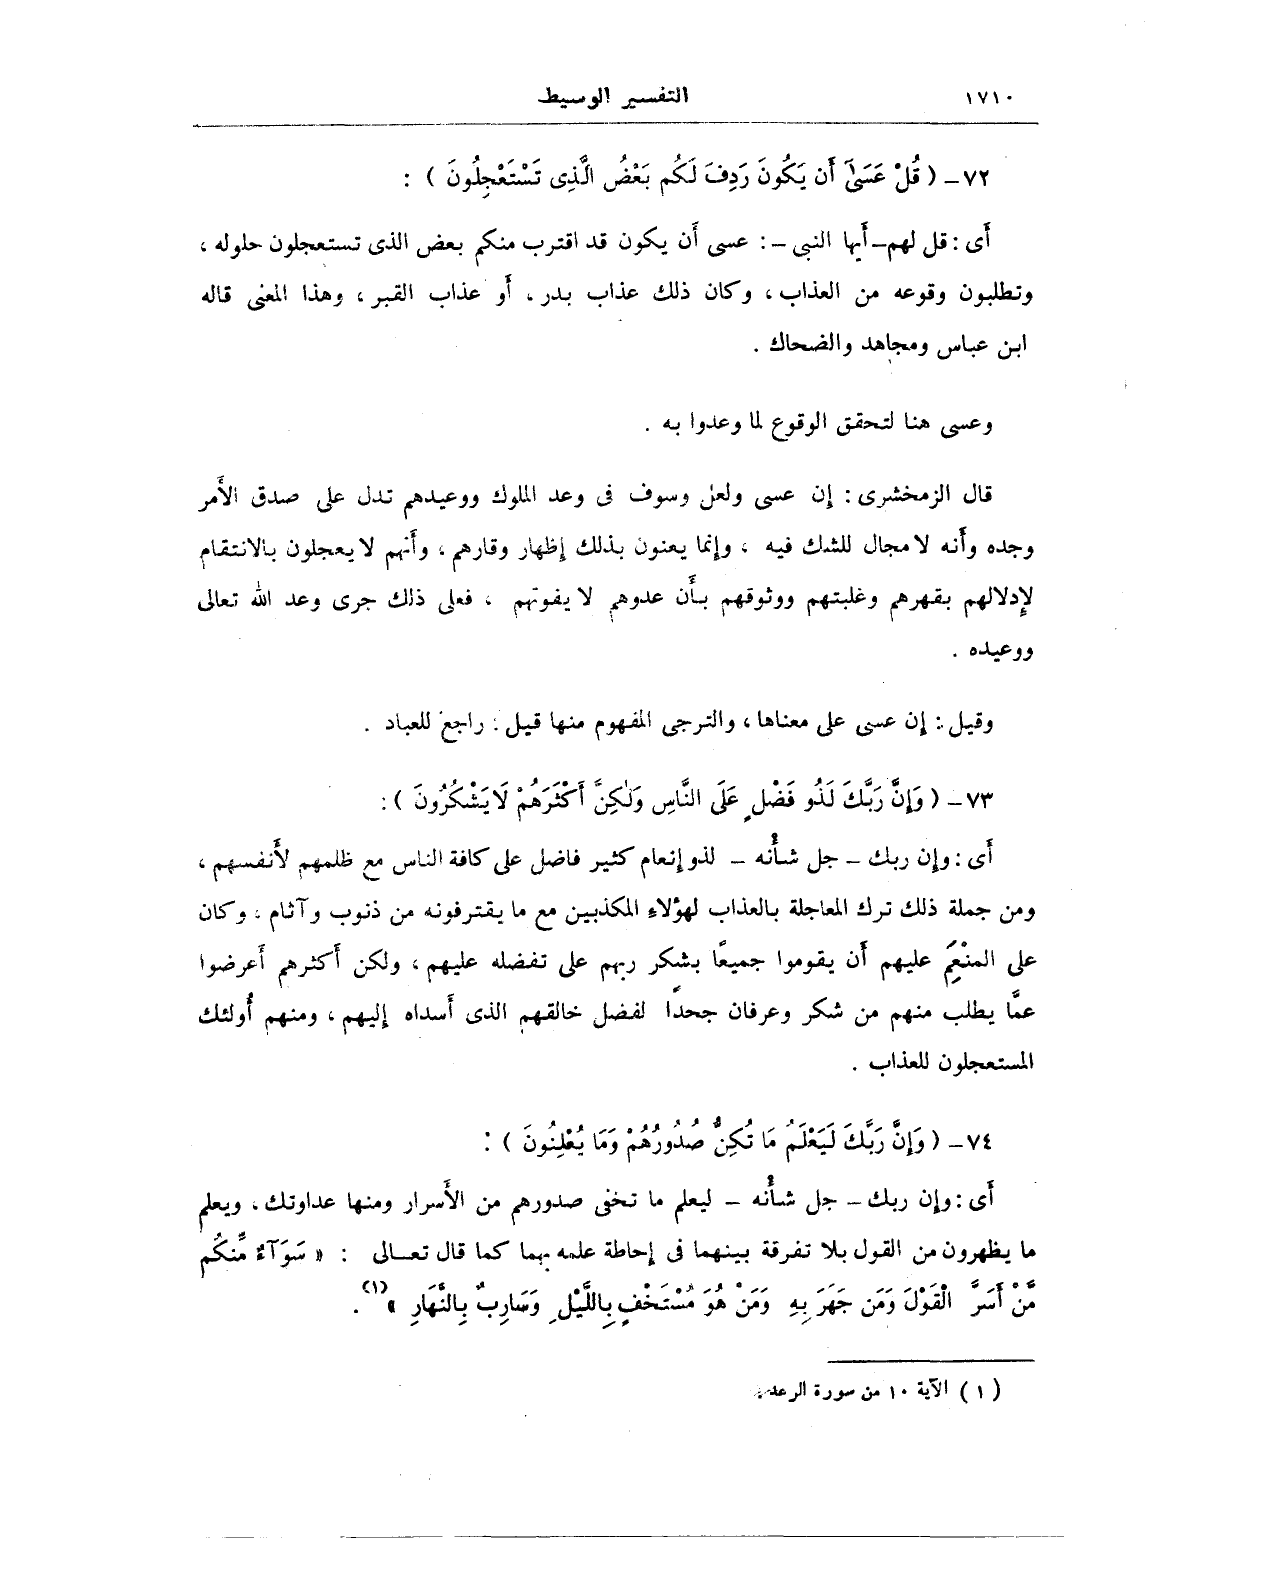 ١٧١٠ التفسير الوسيط
٧٢ـ ( قُلْ عَسَىٰٓ أَن يَكُونَ رَدِفَ لَكُم بَعْضُ الَّذِى تَسْتَعْجِلُونَ ) :
أى : قل لهم ـ أيها النبى ـ : عسى أن يكون قد اقترب منكم بعض الذى تستعجلون حلوله ،
وتطلبون وقوعه من العذاب ، وكان ذلك عذاب بدر ، أو عذاب القبر ، وهذا المعنى قاله
ابن عباس ومجاهد والضحاك .
وعسى هنا لتحقق الوقوع لما وعدوا به .
قال الزمخشرى : إن عسى ولعل وسوف فى وعد الملوك ووعيدهم تدل على صدق الأَمر
وجده وأَنه لا مجال للشك فيه ، وإنما يعنون بذلك إظهار وقارهم ، وأَنهم لا يعجلون بالانتقام
لإدلالهم بقهرهم وغلبتهم ووثوقهم بأَن عدوهم لا يفوتهم ، فعلى ذلك جرى وعد الله تعالى
ووعيده .
وقيل : إن عسى على معناها ، والترجى المفهوم منها قيل : راجع للعباد .
٧٣ـ ( وَإِنَّ رَبَّكَ لَذُو فَضْلٍ عَلَى النَّاسِ وَلَٰكِنَّ أَكْثَرَهُمْ لَا يَشْكُرُونَ ) :
أى : وإن ربك ـ جل شأنه ـ لذو إنعام كثير فاضل على كافة الناس مع ظلمهم لأَنفسهم ،
ومن جملة ذلك ترك المعاجلة بالعذاب لهؤلاء المكذبين مع ما يقترفونه من ذنوب وآثام ، وكان
على المنْعَمِ عليهم أَن يقوموا جميعًا بشكر ربهم على تفضله عليهم ، ولكن أَكثرهم أَعرضوا
عمَّا يطلب منهم من شكر وعرفان جحدًا لفضل خالقهم الذى أَسداه إليهم ، ومنهم أُولئك
المستعجلون للعذاب .
٧٤ـ ( وَإِنَّ رَبَّكَ لَيَعْلَمُ مَا تُكِنُّ صُدُورُهُمْ وَمَا يُعْلِنُونَ ) :
أى : وإن ربك ـ جل شأنه ـ ليعلم ما تخفى صدورهم من الأَسرار ومنها عداوتك ، ويعلم
ما يظهرون من القول بلا تفرقة بينهما فى إحاطة علمه بهما كما قال تعـالى : « سَوَآءٌ مِّنكُم
مَّنْ أَسَرَّ الْقَوْلَ وَمَن جَهَرَ بِهِ وَمَنْ هُوَ مُسْتَخْفٍ بِاللَّيْلِ وَسَارِبٌ بِالنَّهَارِ » (١) .
( ١ ) الآية ١٠ من سورة الرعد .